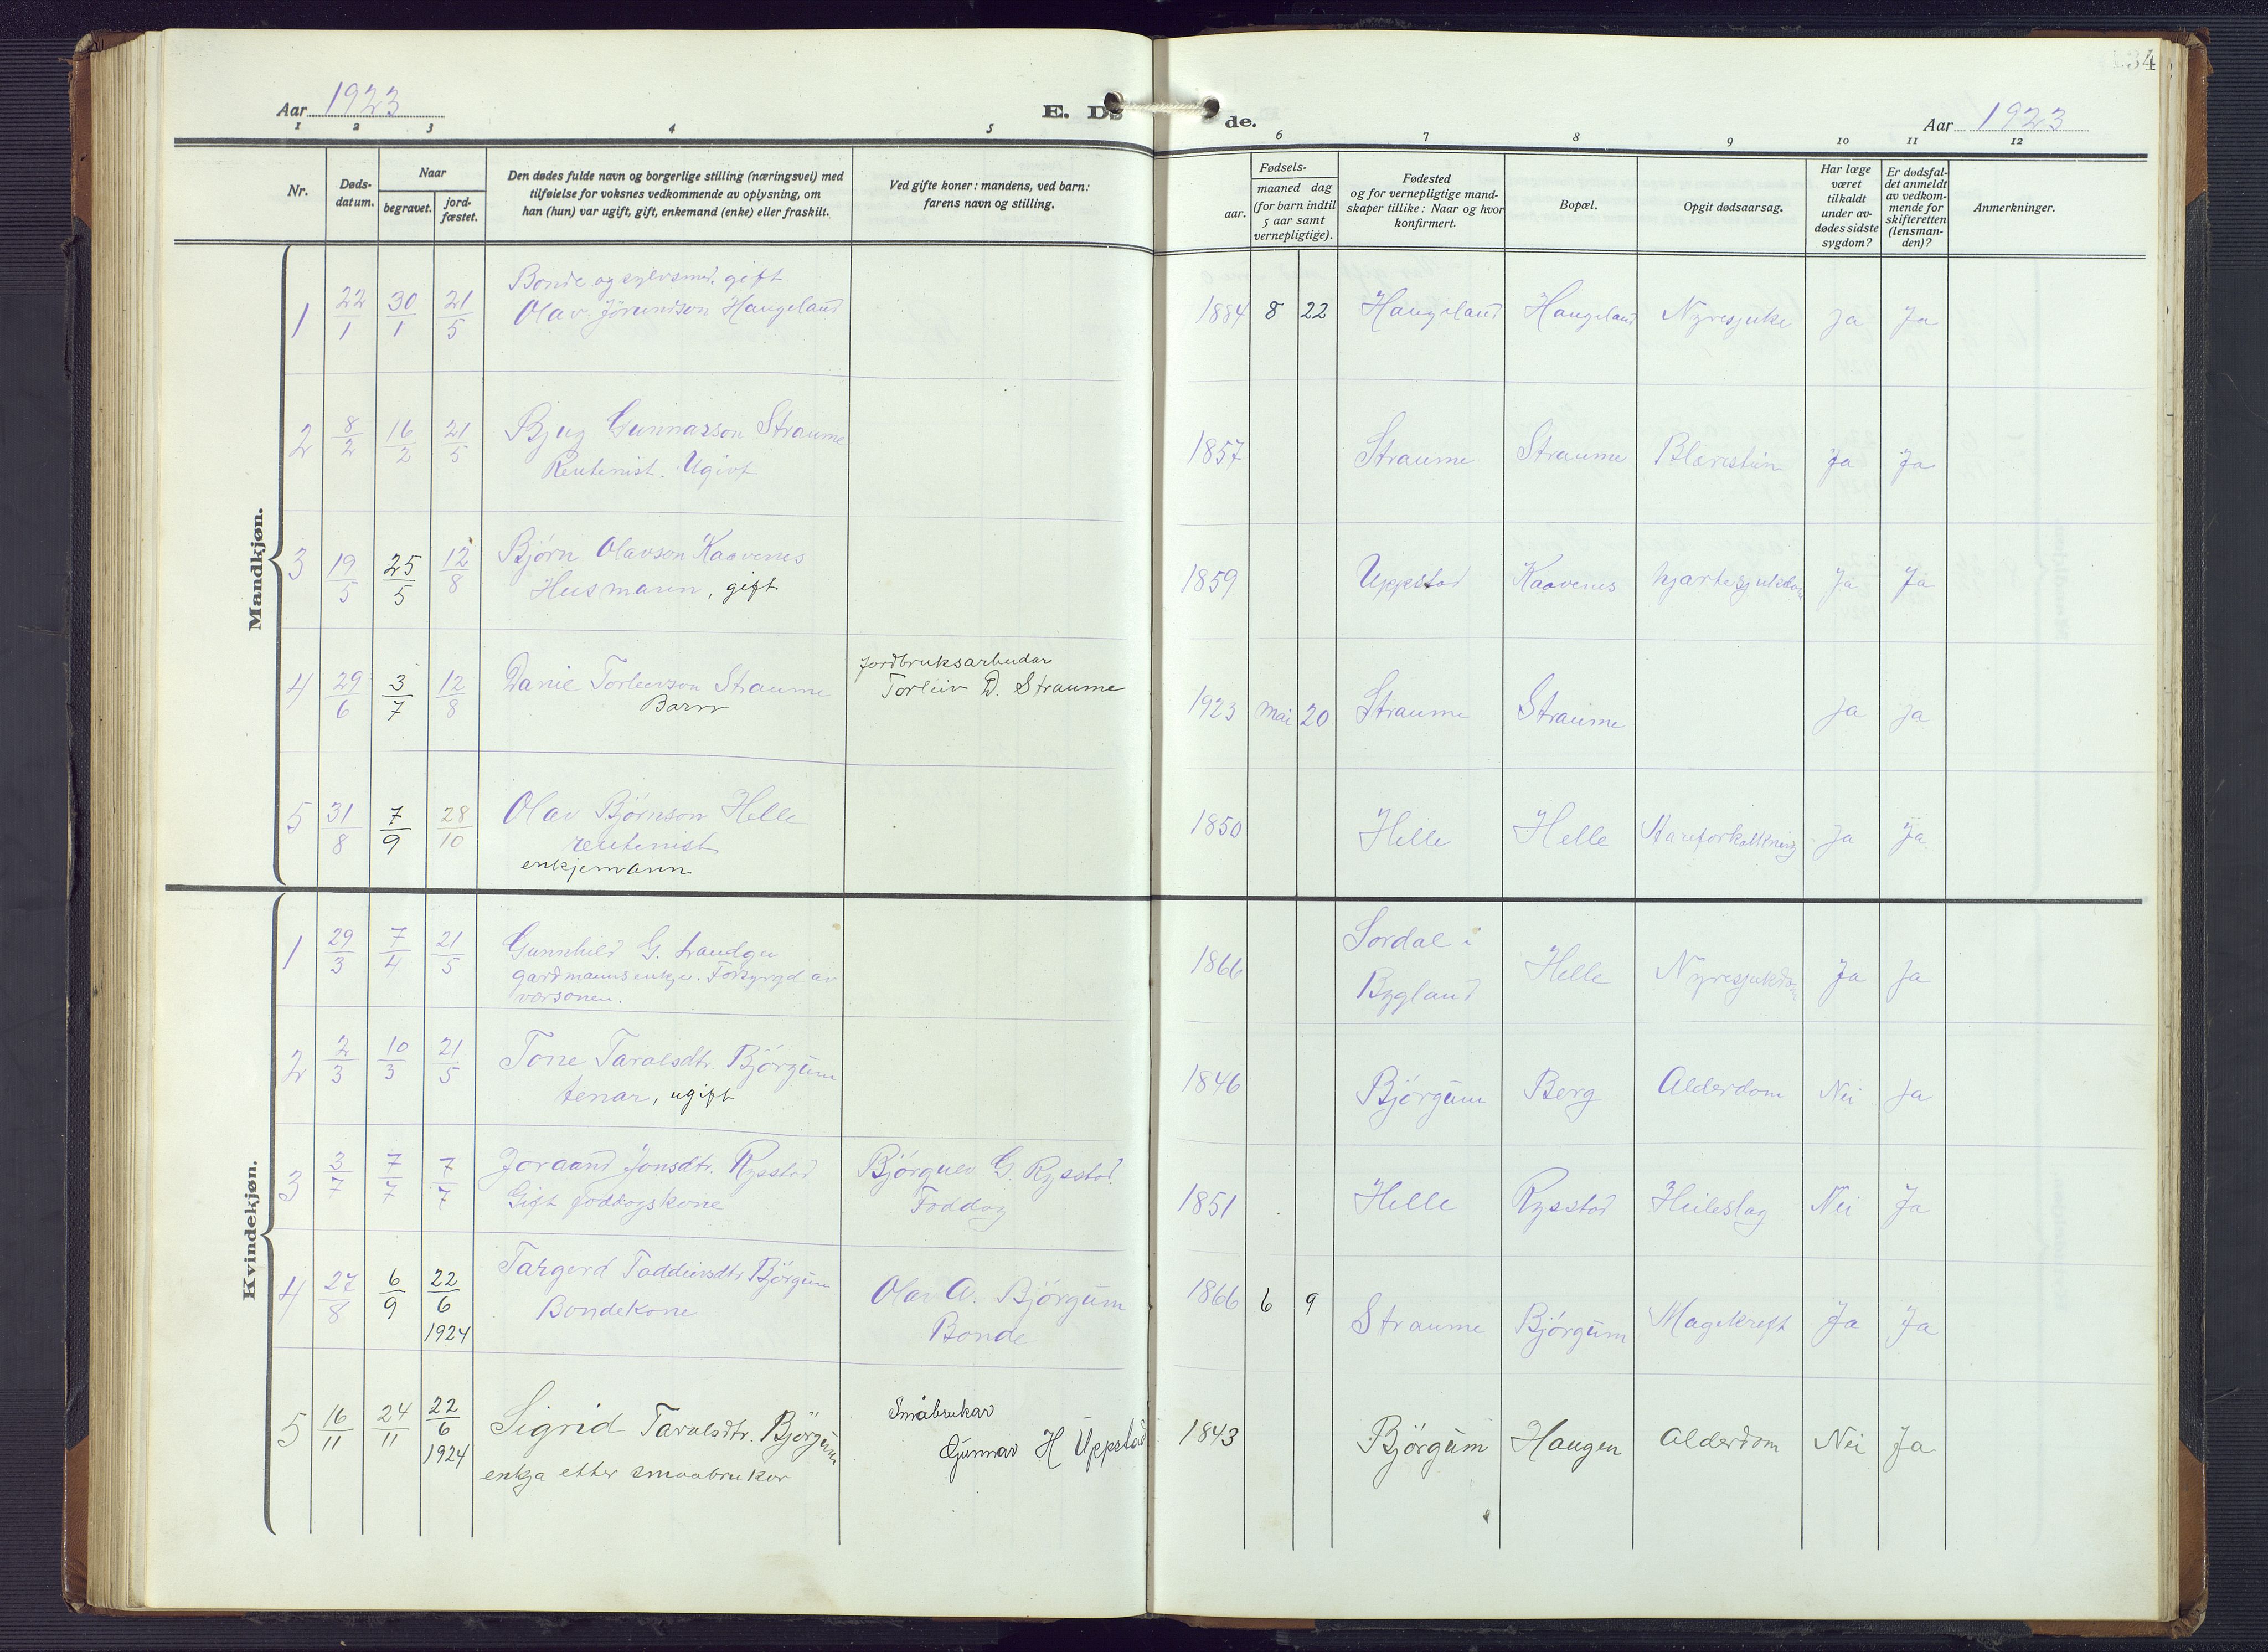 Aar 1923
E. Dø
de.
Aar 1923
34
1 2 3 4 5
6 7 8 9 10 11 12
Nr.
Døds-
datum.
Naar
begravet.
jord-
fæstet.
Den dødes fulde navn og borgerlige stilling (næringsvei) med
tilføielse for voksnes vedkommende av oplysning, om
han (hun) var ugift, gift, enkemand (enke) eller fraskilt.
Ved gifte koner: mandens, ved barn:
farens navn og stilling.
Fødsels-
aar.
maaned dag
(for barn indtil
5 aar samt
vernepligtige).
Fødested
og for vernepligtige mand-
skaper tillike: Naar og hvor
konfirmert.
Bopæl.
Opgit dødsaarsag.
Har læge
været
tilkaldt
under av-
dødes sidste
sygdom?
Er dødsfal-
det anmeldt
av vedkom-
mende for
skifteretten
(lensman-
den)?
Anmerkninger.
Mandkjøn.
Bonde og sylvsmed, gift
1 22/1 30/1 21/5 Olav Jørundson Haugeland 1884 8 22 Haugeland Haugeland Nyresjuke Ja Ja
2 8/2 16/2 21/5 Bjug Gunnarson Straume 1857 Straume Straume Blærestein Ja Ja
Rentenist. Ugivt
3 19/5 25/5 12/8 Bjørn Olavson Kaavenes 1859 Uppstad Kaavenes hjartesjukdom Ja Ja
Husmann, gift
4 29/6 3/7 12/8 Daniel Torleivson Straume
Barn
jordbruksarbeidar
Torleiv D. Straume 1923 Mai 20 Straume Straume Ja Ja
5 31/8 7/9 28/10 Olav Bjørnson Helle 1850 Helle Helle Aareforkalkning Ja Ja
rentenist
enkjemann
Kvindekjøn.
1 29/3 7/4 21/5 Gunnhild G. 1866 Sordal i
Bygland Helle Nyresjukdom Ja Ja
gardmannsenkje. Forsyrgd av
versonen.
2 2/3 10/3 21/5 Tone Taralsdtr. Bjørgum 1846 Bjørgum Berg Alderdom Nei Ja
tenar, ugift
3 3/7 7/7 7/7 Joraand Jonsdtr. Rysstad Bjørguv G. Rysstad. 1851 Helle Rysstad Heileslag Nei Ja
Gift foddogskone Foddog
4 27/8 6/9 22/6 1924 Targerd Taddeivsdtr Bjørgum Olav A. Bjørgum 1866 6 9 Straume Bjørgum Magekreft Ja Ja
Bondekone Bonde
5 16/11 24/11 22/6 1924 Sigrid Taralsdtr. Bjørgum
enkja etter smaabrukar
Småbrukar
Gunnar H Uppstad 1843 Bjørgum Haugen Alderdom Nei Ja